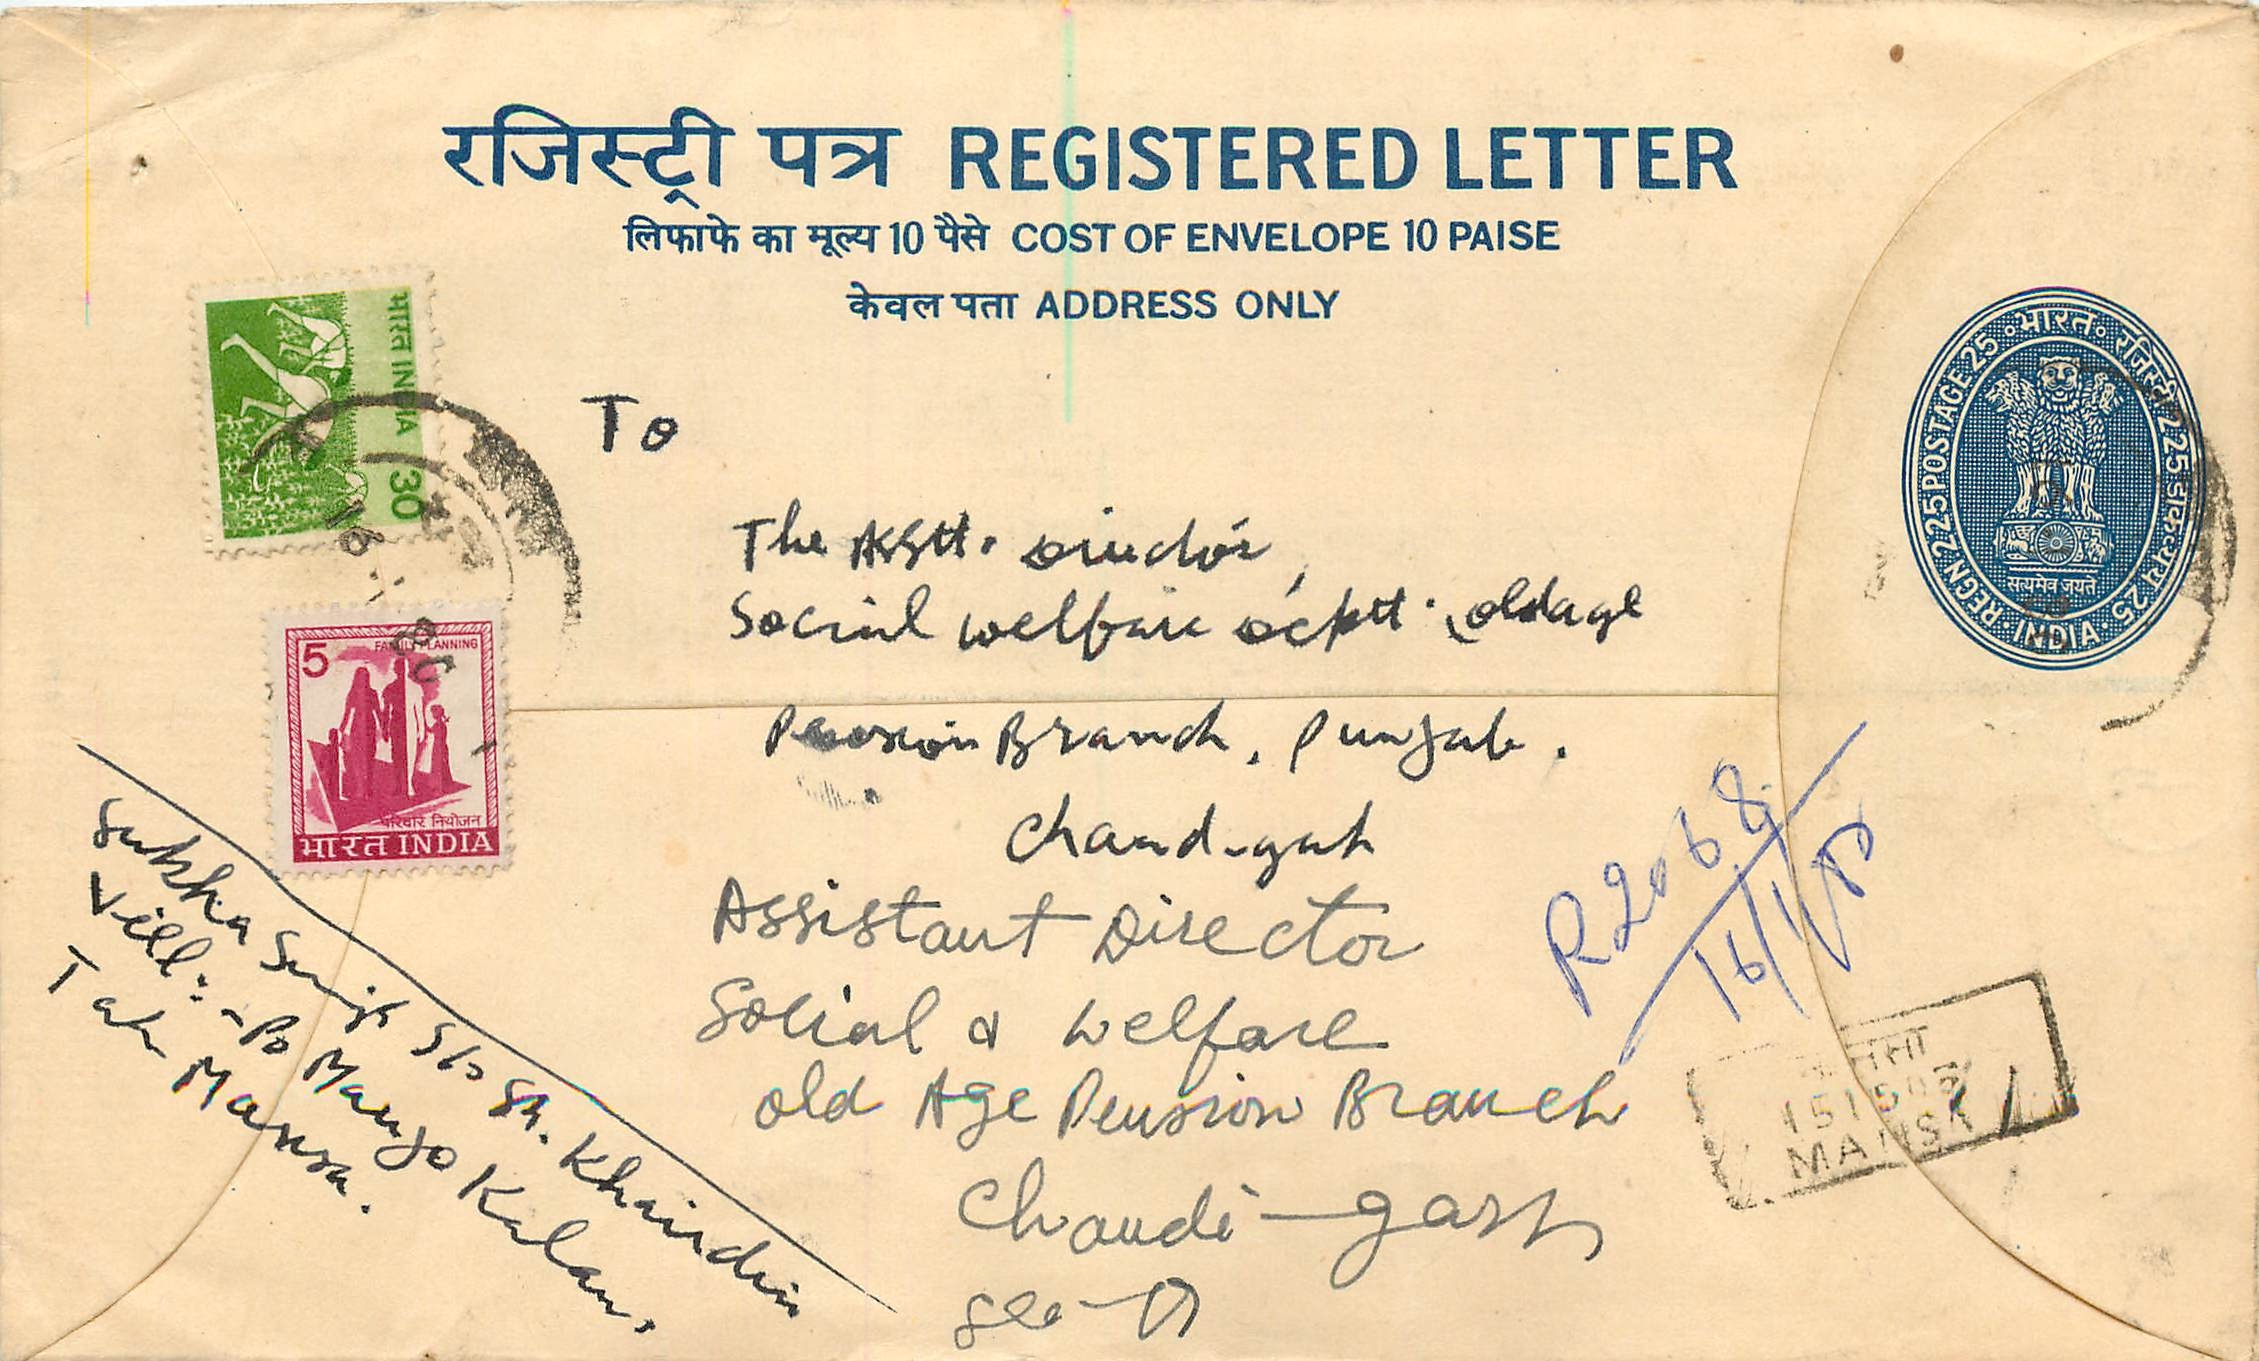 रजिस्ट्री पत्र REGISTERED LETTER
लिफाफे का मूल्य 10 पैसे COST OF ENVELOPE 10 PAISE
केवल पता ADDRESS ONLY
भारत INDIA 30
5 FAMILY PLANNING
परिवार नियोजन
भारत INDIA
REGN 225 POSTAGE 25 भारत रजिस्ट्री 225 डाकव्यय 25
सत्यमेव जयते
INDIA
To
The Asstt. Director,
Social welfare Deptt. oldage
Pension Branch, Punjab.
Chandigarh
Assistant Director
Social & Welfare
old Age Pension Branch
Chandi-garh
R2068
16/1/80
151505
MANSA
Sukha Singh S/o Sh. Khairdin
Vill:-Po Manjo Kalan,
Teh Mansa.